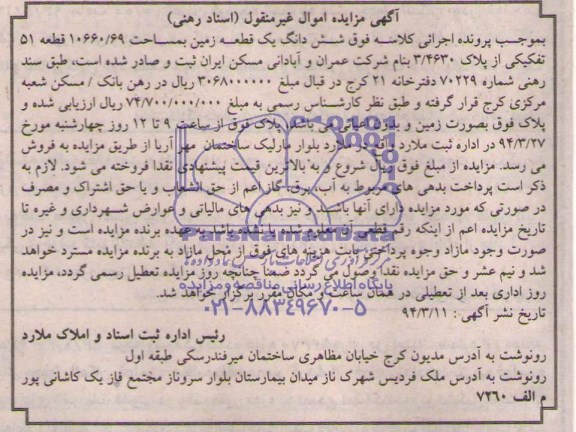 آگهی مزایده اموال غیرمنقول (اسناد رهنی)
بموجب پرونده اجرائی کلاسه فوق شش دانگ یک قطعه زمین بمساحت ۱۰۶۶۰/۶۹ قطعه ۵۱
تفکیکی از پلاک ۳/۴۶۳۰ بنام شرکت عمران و آبادانی مسکن ایران ثبت و صادر شده است، طبق سند
رهنی شماره ۷۰۲۲۹ دفترخانه ۲۱ کرج در قبال مبلغ ۳۰۶۸۰۰۰۰۰۰ ریال در رهن بانک / مسکن شعبه
مرکزی کرج قرار گرفته و طبق نظر کارشناس رسمی به مبلغ ۷۴/۷۰۰/۰۰۰/۰۰۰ ریال ارزیابی شده و
پلاک فوق بصورت زمین و بدون اعیانی می باشد پلاک فوق از ساعت ۹ تا ۱۲ روز چهارشنبه مورخ
۹۴/۳/۲۷ در اداره ثبت ملارد واقع در ملارد بلوار مارلیک ساختمان مهر آریا از طریق مزایده به فروش
می رسد. مزایده از مبلغ فوق ریال شروع و به بالاترین قیمت پیشنهادی نقدا فروخته می شود. لازم به
ذکر است پرداخت بدهی های مربوط به آب، برق، گاز اعم از حق انشعاب و یا حق اشتراک و مصرف
در صورتی که مورد مزایده دارای آنها باشد و نیز بدهی های مالیاتی و عوارض شهرداری و غیره تا
تاریخ مزایده اعم از اینکه رقم قطعی آن معلوم شده یا نشده باشد به عهده برنده مزایده است و نیز در
صورت وجود مازاد وجوه پرداختی بابت هزینه های فوق از محل مازاد به برنده مزایده مسترد خواهد
شد و نیم عشر و حق مزایده نقدا وصول می گردد ضمنا چنانچه روز مزایده تعطیل رسمی گردد، مزایده
روز اداری بعد از تعطیلی در همان ساعت و مکان مقرر برگزار خواهد شد.
تاریخ نشر آگهی : ۹۴/۳/۱۱
رئیس اداره ثبت اسناد و املاک ملارد
رونوشت به آدرس مدیون کرج خیابان مظاهری ساختمان میرفندرسکی طبقه اول
رونوشت به آدرس ملک فردیس شهرک ناز میدان بیمارستان بلوار سروناز مجتمع فاز یک کاشانی پور
م الف ۷۲۶۰
ParsNamadData
پایگاه اطلاع رسانی مناقصه و مزایده
۰۲۱-۸۸۳۴۹۶۷۰-۵